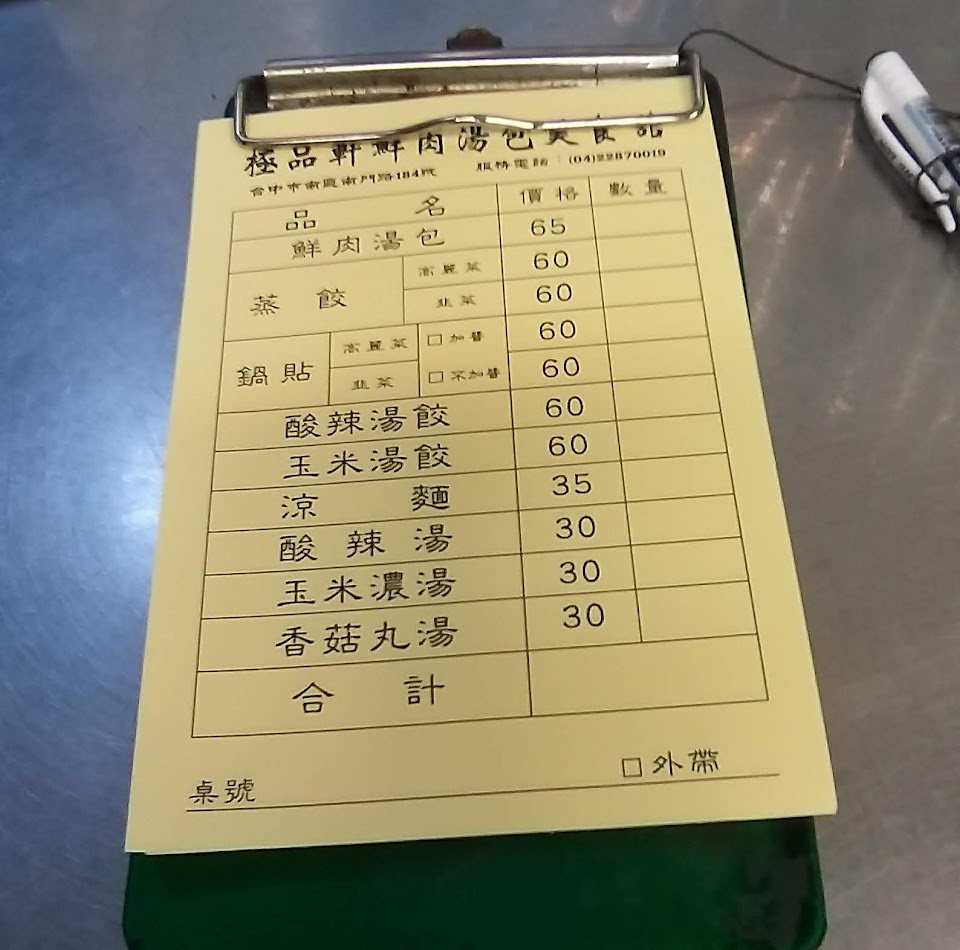 極品軒鮮肉湯包美食坊
台中市南區南門路184號 服務電話：(04)22870019
品名 價格 數量
鮮肉湯包 65
蒸餃 高麗菜 60
韭菜 60
鍋貼 高麗菜 □加醬 60
韭菜 □不加醬 60
酸辣湯餃 60
玉米湯餃 60
涼麵 35
酸辣湯 30
玉米濃湯 30
香菇丸湯 30
合計
桌號 □外帶